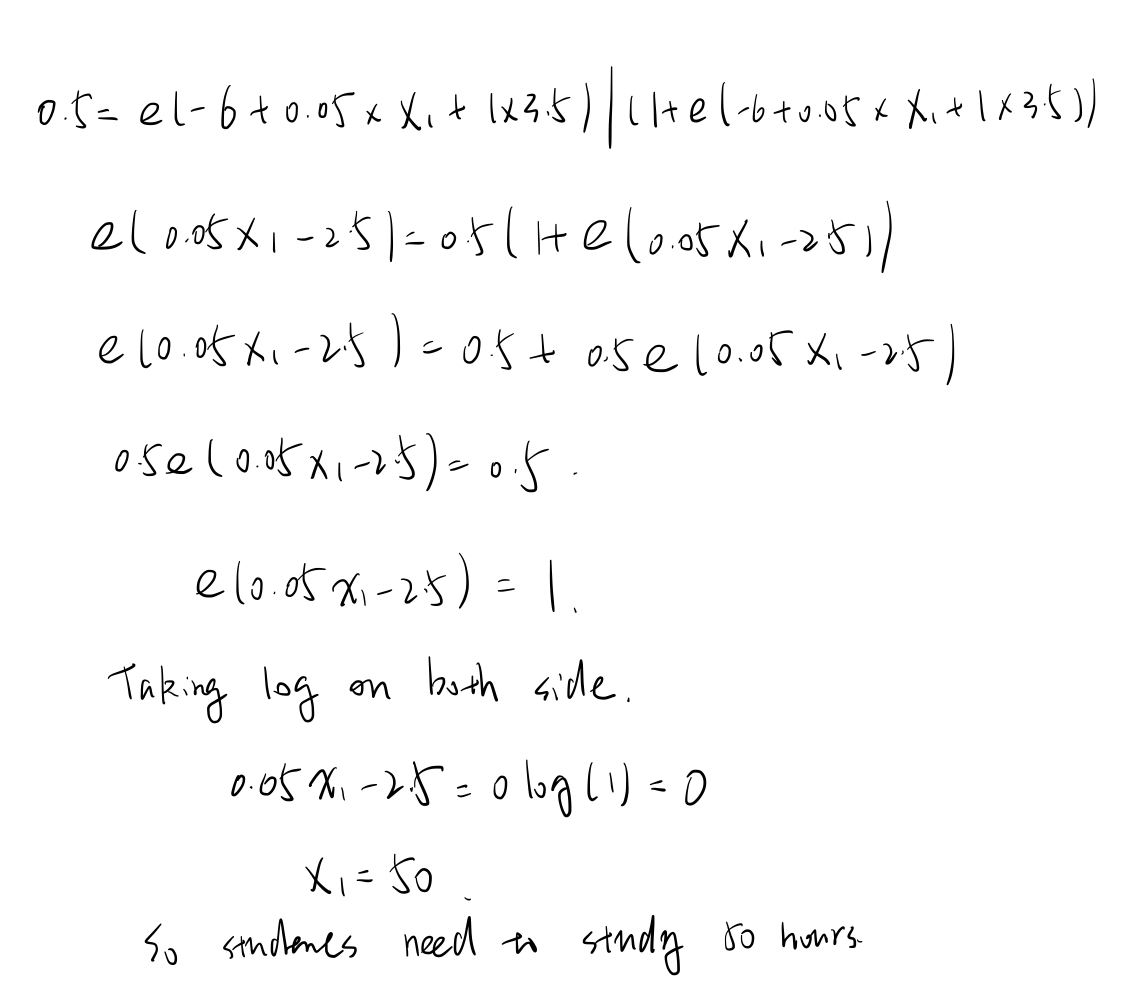 0.5= e(-6+0.05×X₁+1×3.5)|(1+e(-6+0.05×X₁+1×3.5))
e(0.05X₁-2.5)=0.5(1+e(0.05X₁-2.5))
e(0.05X₁-2.5)=0.5+0.5e(0.05X₁-2.5)
0.5e(0.05X₁-2.5)=0.5.
e(0.05x₁-2.5)=1.
Taking log on both side.
0.05x₁-2.5=0 log(1)=0
X₁=50.
So students need to study 50 hours.